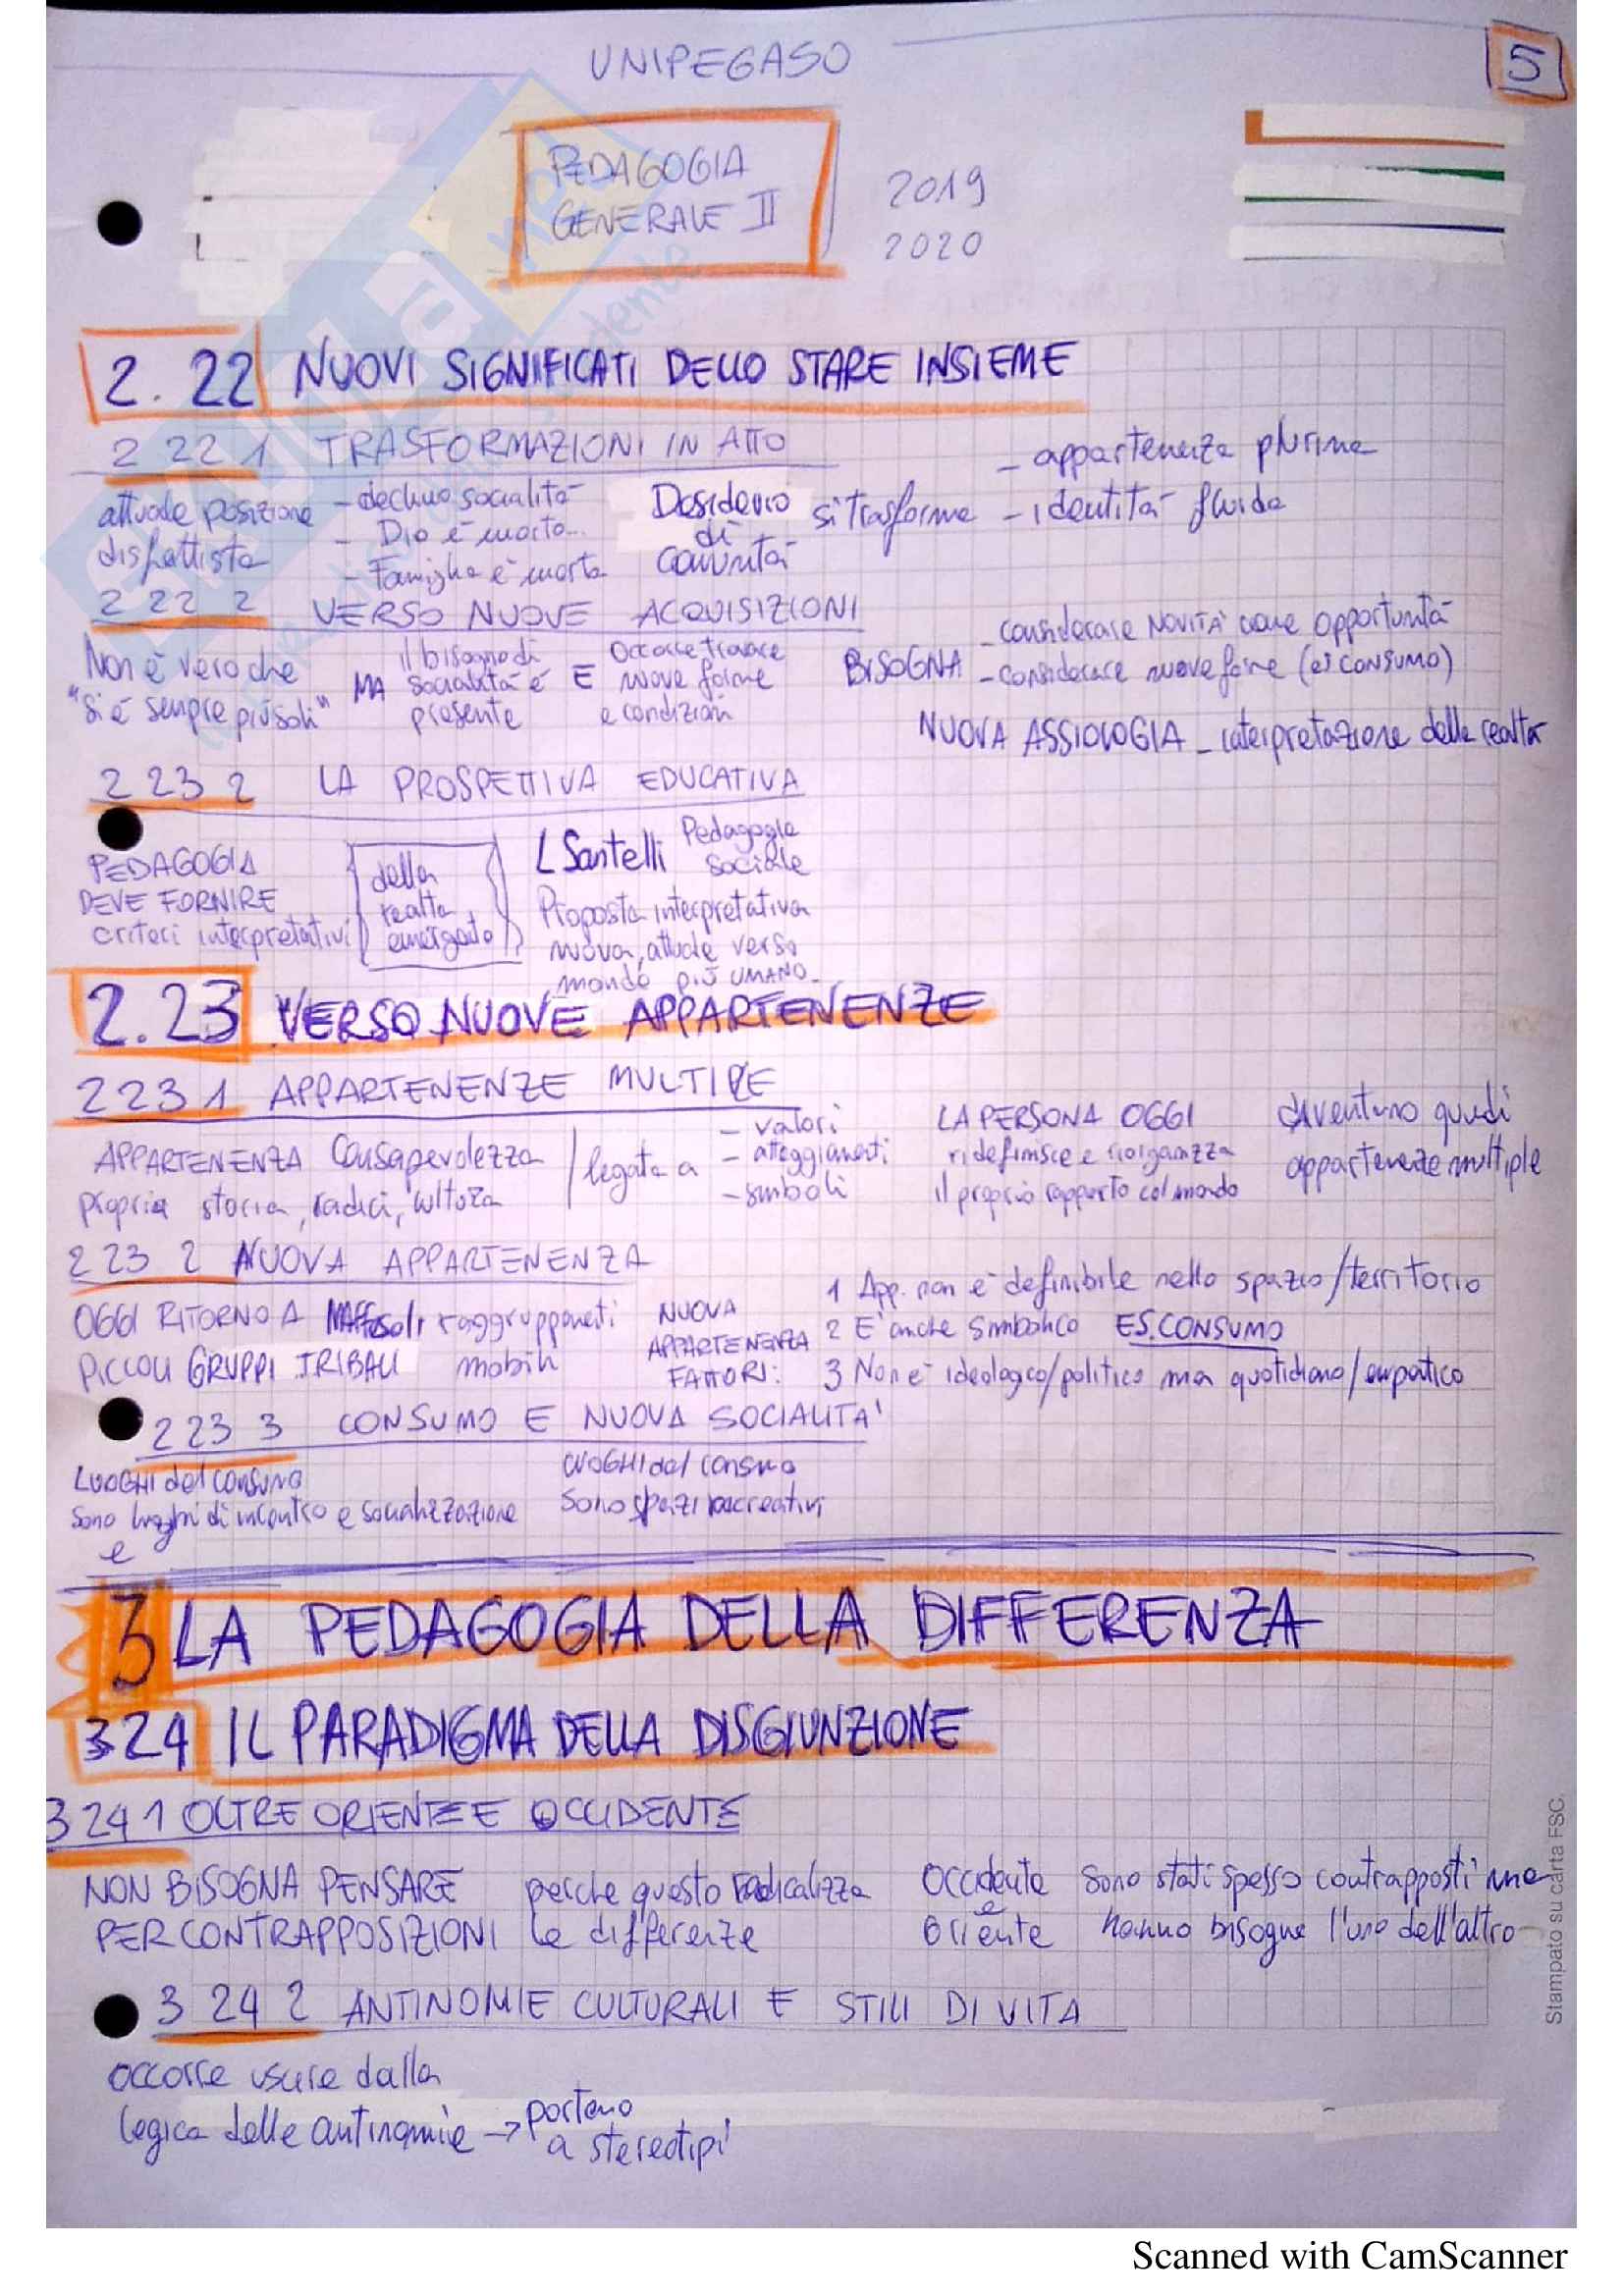 UNIPEGASO
5
PEDAGOGIA
GENERALE II
2019
2020
2.22 NUOVI SIGNIFICATI DELLO STARE INSIEME
2 22 1 TRASFORMAZIONI IN ATTO
attuale posizione
disfattista
- declino socialità
- Dio è morto...
- Famiglia è morta
Desiderio
di
comunità
si trasforma
- appartenenza plurima
- identità fluida
2 22 2 VERSO NUOVE ACQUISIZIONI
Non è vero che
"si è sempre più soli"
MA
il bisogno di
socialità è
presente
E
Occorre trovare
nuove forme
e condizioni
BISOGNA
- considerare NOVITÀ come opportunità
- considerare nuove forme (es CONSUMO)
NUOVA ASSIOLOGIA - interpretazione della realtà
2 23 2 LA PROSPETTIVA EDUCATIVA
PEDAGOGIA
DEVE FORNIRE
criteri interpretativi
della
realtà
emergente
L Santelli Pedagogia
sociale
Proposta interpretativa
nuova, attuale verso
mondo più UMANO
2.23 VERSO NUOVE APPARTENENZE
2 23 1 APPARTENENZE MULTIPLE
APPARTENENZA Consapevolezza
propria storia, radici, cultura
legata a
- valori
- atteggiamenti
- simboli
LA PERSONA OGGI
ridefinisce e riorganizza
il proprio rapporto col mondo
diventano quindi
appartenenze multiple
2 23 2 NUOVA APPARTENENZA
OGGI RITORNO A
PICCOLI GRUPPI TRIBALI
Maffesoli raggruppamenti
mobili
NUOVA
APPARTENENZA
FATTORI:
1 App. non è definibile nello spazio/territorio
2 E' anche simbolico ES. CONSUMO
3 Non è ideologico/politico ma quotidiano/empatico
2 23 3 CONSUMO E NUOVA SOCIALITA'
LUOGHI del consumo
sono luoghi di incontro e socializzazione
e
LUOGHI del consumo
sono spazi ricreativi
3 LA PEDAGOGIA DELLA DIFFERENZA
3 24 IL PARADIGMA DELLA DISGIUNZIONE
3 24 1 OLTRE ORIENTE E OCCIDENTE
NON BISOGNA PENSARE
PER CONTRAPPOSIZIONI
perche questo radicalizza
le differenze
Occidente
e
Oriente
sono stati spesso contrapposti ma
hanno bisogno l'uno dell'altro
3 24 2 ANTINOMIE CULTURALI E STILI DI VITA
occorre uscire dalla
logica delle antinomie → portano
a stereotipi
Stampato su carta FSC.
Scanned with CamScanner